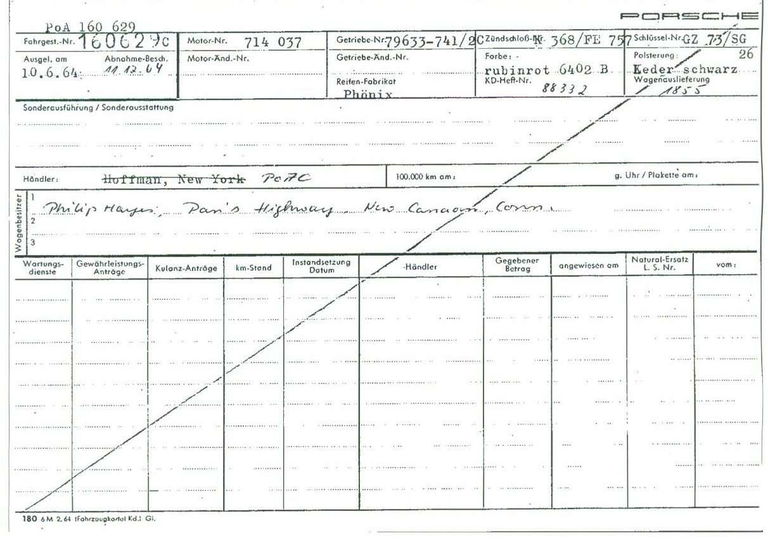 PORSCHE
PoA 160 629
Fahrgest.-Nr. 160629c Motor-Nr. 714 037 Getriebe-Nr. 79633-741/2C Zündschloß-Nr. K 368/FE 757 Schlüssel-Nr. GZ 73/SG
Ausgel. am Abnahme-Besch. Motor-Änd.-Nr. Getriebe-Änd.-Nr. Farbe: Polsterung: 26
10.6.64 11.12.64 rubinrot 6402 B Keder schwarz
Reifen-Fabrikat KD-Heft-Nr. 88332 Wagenauslieferung
Phönix 1855
Sonderausführung / Sonderausstattung
Händler: Hoffman, New York PoAC 100.000 km am: g. Uhr / Plakette am:
Wagenbesitzer
1 Philip Highway New Canaan, Conn.
2
3
Wartungsdienste Gewährleistungs-Anträge Kulanz-Anträge km-Stand Instandsetzung Datum Händler Gegebener Betrag angewiesen am Natural-Ersatz L. S. Nr. vom:
180 6 M 2. 64 (Fahrzeugkartei Kd.) Gl.